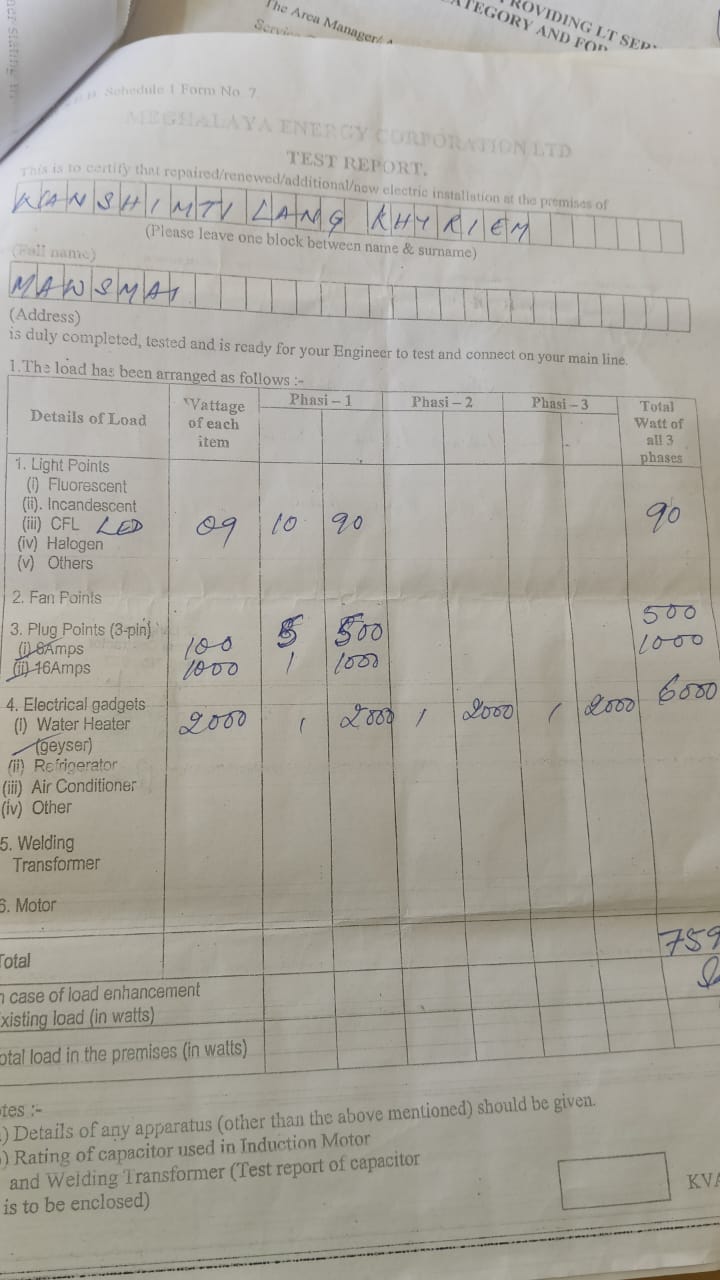 The Area Manager/
PROVIDING LT SER
CATEGORY AND FOR
Schedule 1 Form No. 7
MEGHALAYA ENERGY CORPORATION LTD
TEST REPORT.
This is to certify that repaired/renewed/additional/new electric installation at the premises of
WANSHIMTI LANG KHYRIEM
(Please leave one block between name & surname)
(Full name)
MAWSMAI
(Address)
is duly completed, tested and is ready for your Engineer to test and connect on your main line.
1.The load has been arranged as follows :-
Details of Load Wattage of each item Phasi – 1 Phasi – 2 Phasi – 3 Total Watt of all 3 phases
1. Light Points
(i) Fluorescent
(ii). Incandescent
(iii) CFL LED 09 10 90 90
(iv) Halogen
(v) Others
2. Fan Points
3. Plug Points (3-pin)
(i) 6Amps 100 5 500 500
(ii) 16Amps 1000 1 1000 1000
4. Electrical gadgets
(i) Water Heater 2000 1 2000 1 2000 1 2000 6000
(geyser)
(ii) Refrigerator
(iii) Air Conditioner
(iv) Other
5. Welding
Transformer
6. Motor
Total 759
n case of load enhancement
xisting load (in watts)
otal load in the premises (in watts)
tes :-
) Details of any apparatus (other than the above mentioned) should be given.
) Rating of capacitor used in Induction Motor
and Welding Transformer (Test report of capacitor
is to be enclosed)
KVA